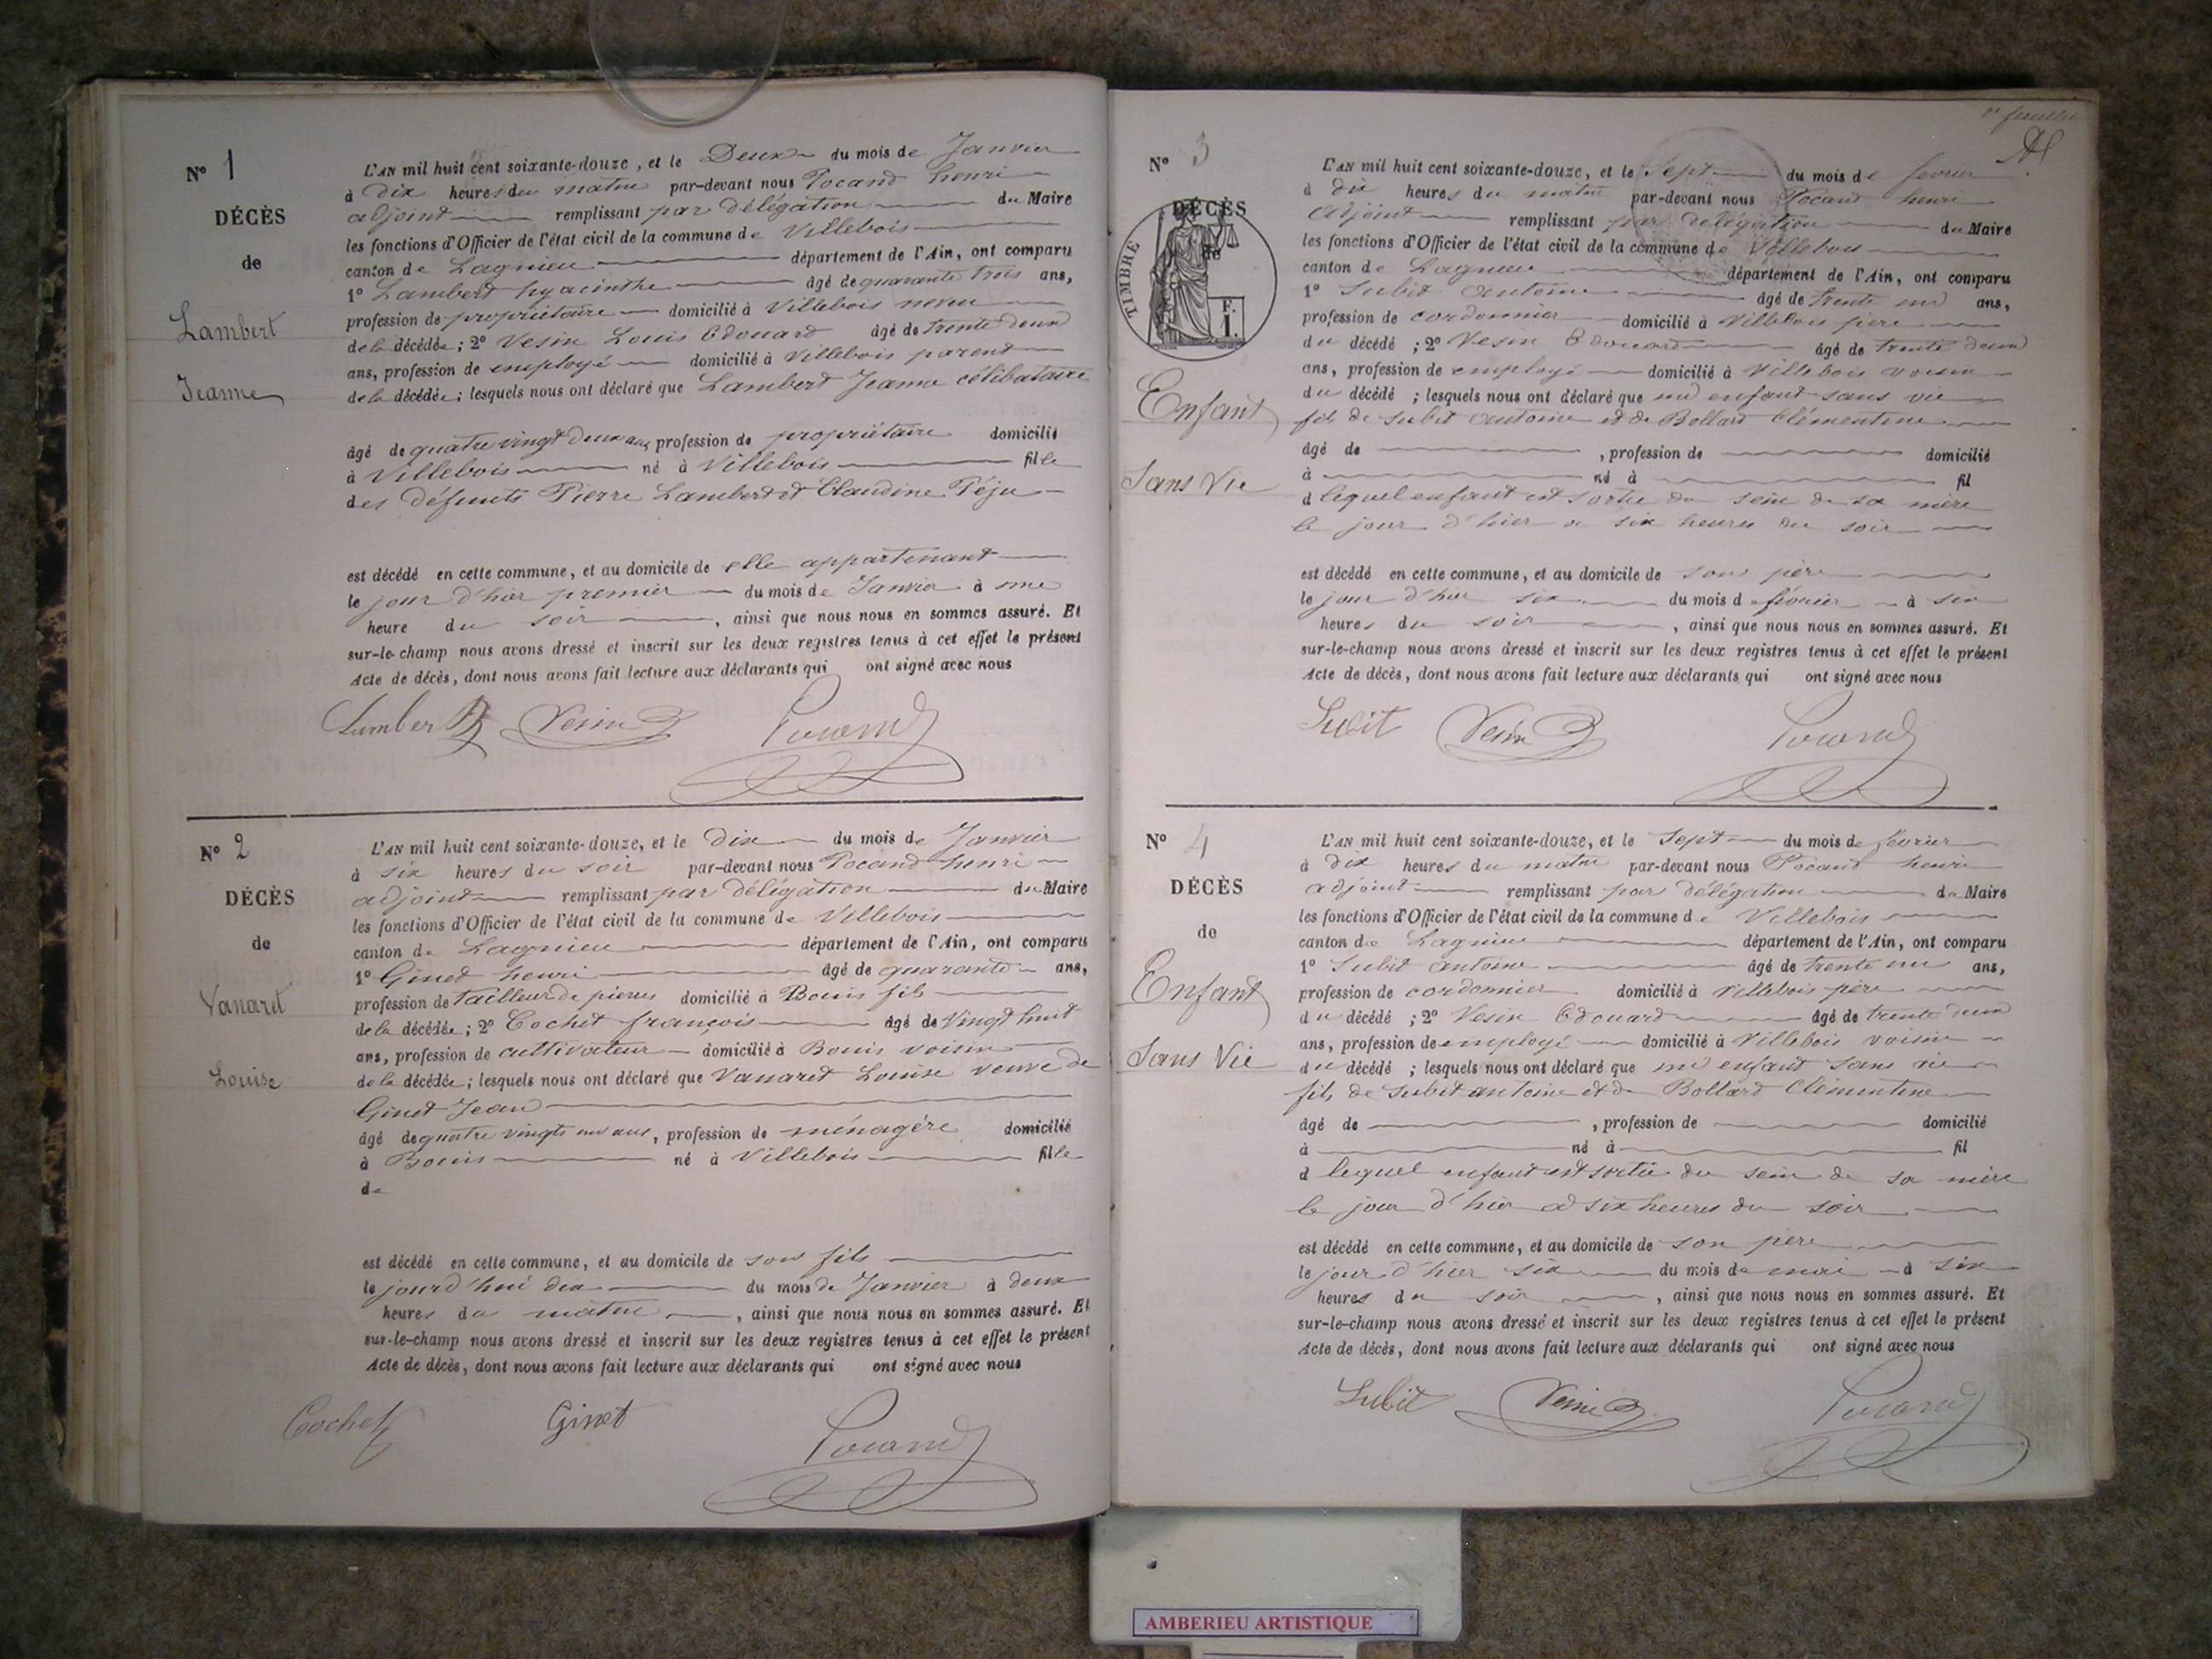 N° 1
DÉCÈS
de
Lambert
Jeanne
L'AN mil huit cent soixante-douze, et le Deux du mois de Janvier
à Dix heures du matin par-devant nous Pocand henri
adjoint remplissant par délégation du Maire
les fonctions d'Officier de l'état civil de la commune de Villebois
canton de Lagnieu département de l'Ain, ont comparu
1° Lambert hyacinthe âgé de quarante trois ans,
profession de propriétaire domicilié à Villebois neveu
de la décédée ; 2° Vesin Louis Edouard âgé de trente deux
ans, profession de employé domicilié à Villebois parent
de la décédée ; lesquels nous ont déclaré que Lambert Jeanne célibataire
âgé de quatre vingt deux ans, profession de propriétaire domicilié
à Villebois né à Villebois fille
des défunts Pierre Lambert et Claudine Péju
est décédé en cette commune, et au domicile de elle appartenant
le jour d'hier premier du mois de Janvier à une
heure du soir , ainsi que nous nous en sommes assuré. Et
sur-le-champ nous avons dressé et inscrit sur les deux registres tenus à cet effet le présent
Acte de décès, dont nous avons fait lecture aux déclarants qui ont signé avec nous
Lambert Vesin Pocand
N° 2
DÉCÈS
de
Vanaret
Louise
L'AN mil huit cent soixante-douze, et le Dix du mois de Janvier
à six heures du soir par-devant nous Pocand henri
adjoint remplissant par délégation du Maire
les fonctions d'Officier de l'état civil de la commune de Villebois
canton de Lagnieu département de l'Ain, ont comparu
1° Ginet henri âgé de quarante ans,
profession de tailleur de pierres domicilié à Bouis fils
de la décédée ; 2° Cochet françois âgé de Vingt huit
ans, profession de cultivateur domicilié à Bouis voisin
de la décédée ; lesquels nous ont déclaré que Vanaret Louise veuve de
Ginet Jean
âgé de quatre vingts un ans, profession de ménagère domicilié
à Bouis né à Villebois fille
de
est décédé en cette commune, et au domicile de son fils
le jourd'hui dix du mois de Janvier à deux
heures du matin , ainsi que nous nous en sommes assuré. Et
sur-le-champ nous avons dressé et inscrit sur les deux registres tenus à cet effet le présent
Acte de décès, dont nous avons fait lecture aux déclarants qui ont signé avec nous
Cochet Ginet Pocand
N° 3
DÉCÈS
de
TIMBRE
F.
1.
Enfant
Sans Vie
L'AN mil huit cent soixante-douze, et le Sept du mois de fevrier
à dix heures du matin par-devant nous Pocand henri
adjoint remplissant par délégation du Maire
les fonctions d'Officier de l'état civil de la commune de Villebois
canton de Lagnieu département de l'Ain, ont comparu
1° Subit antoine âgé de trente un ans,
profession de cordonnier domicilié à Villebois père
du décédé ; 2° Vesin Edouard âgé de trente deux
ans, profession de employé domicilié à Villebois voisin
du décédé ; lesquels nous ont déclaré que un enfant sans vie
fils de Subit antoine et de Bollard Clémentine
âgé de , profession de domicilié
à né à fil
d lequel enfant est sortie du sein de sa mère
le jour d'hier a six heures du soir
est décédé en cette commune, et au domicile de son père
le jour d'hier six du mois de février à six
heures du soir , ainsi que nous nous en sommes assuré. Et
sur-le-champ nous avons dressé et inscrit sur les deux registres tenus à cet effet le présent
Acte de décès, dont nous avons fait lecture aux déclarants qui ont signé avec nous
Subit Vesin Pocand
N° 4
DÉCÈS
de
Enfant
Sans Vie
L'AN mil huit cent soixante-douze, et le Sept du mois de février
à dix heures du matin par-devant nous Pocand henri
adjoint remplissant par délégation du Maire
les fonctions d'Officier de l'état civil de la commune de Villebois
canton de Lagnieu département de l'Ain, ont comparu
1° Subit antoine âgé de trente un ans,
profession de cordonnier domicilié à Villebois père
du décédé ; 2° Vesin Edouard âgé de trente deux
ans, profession de employé domicilié à Villebois voisin
du décédé ; lesquels nous ont déclaré que un enfant sans vie
fils de Subit antoine et de Bollard Clémentine
âgé de , profession de domicilié
à né à fil
d lequel enfant est sortie du sein de sa mère
le jour d'hier a six heures du soir
est décédé en cette commune, et au domicile de son père
le jour d'hier six du mois de mai à six
heures du soir , ainsi que nous nous en sommes assuré. Et
sur-le-champ nous avons dressé et inscrit sur les deux registres tenus à cet effet le présent
Acte de décès, dont nous avons fait lecture aux déclarants qui ont signé avec nous
Subit Vesin Pocand
AMBERIEU ARTISTIQUE